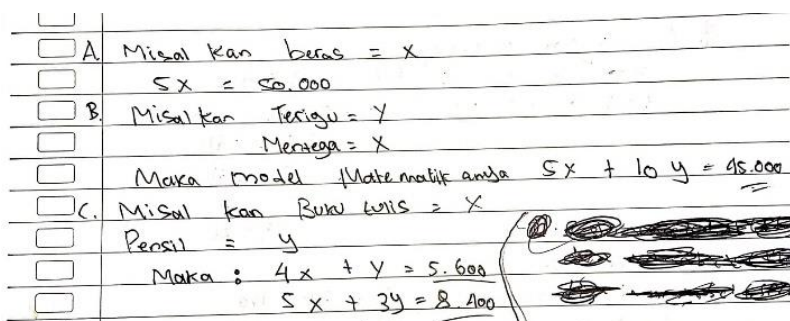 A. Misal kan beras = x
5x = 50.000
B. Misal kan Terigu = y
Mentega = x
Maka model Matematik anya 5x + 10y = 45.000
C. Misal kan Buku tulis = x
Pensil = y
Maka : 4x + y = 5.600
5x + 3y = 8.400